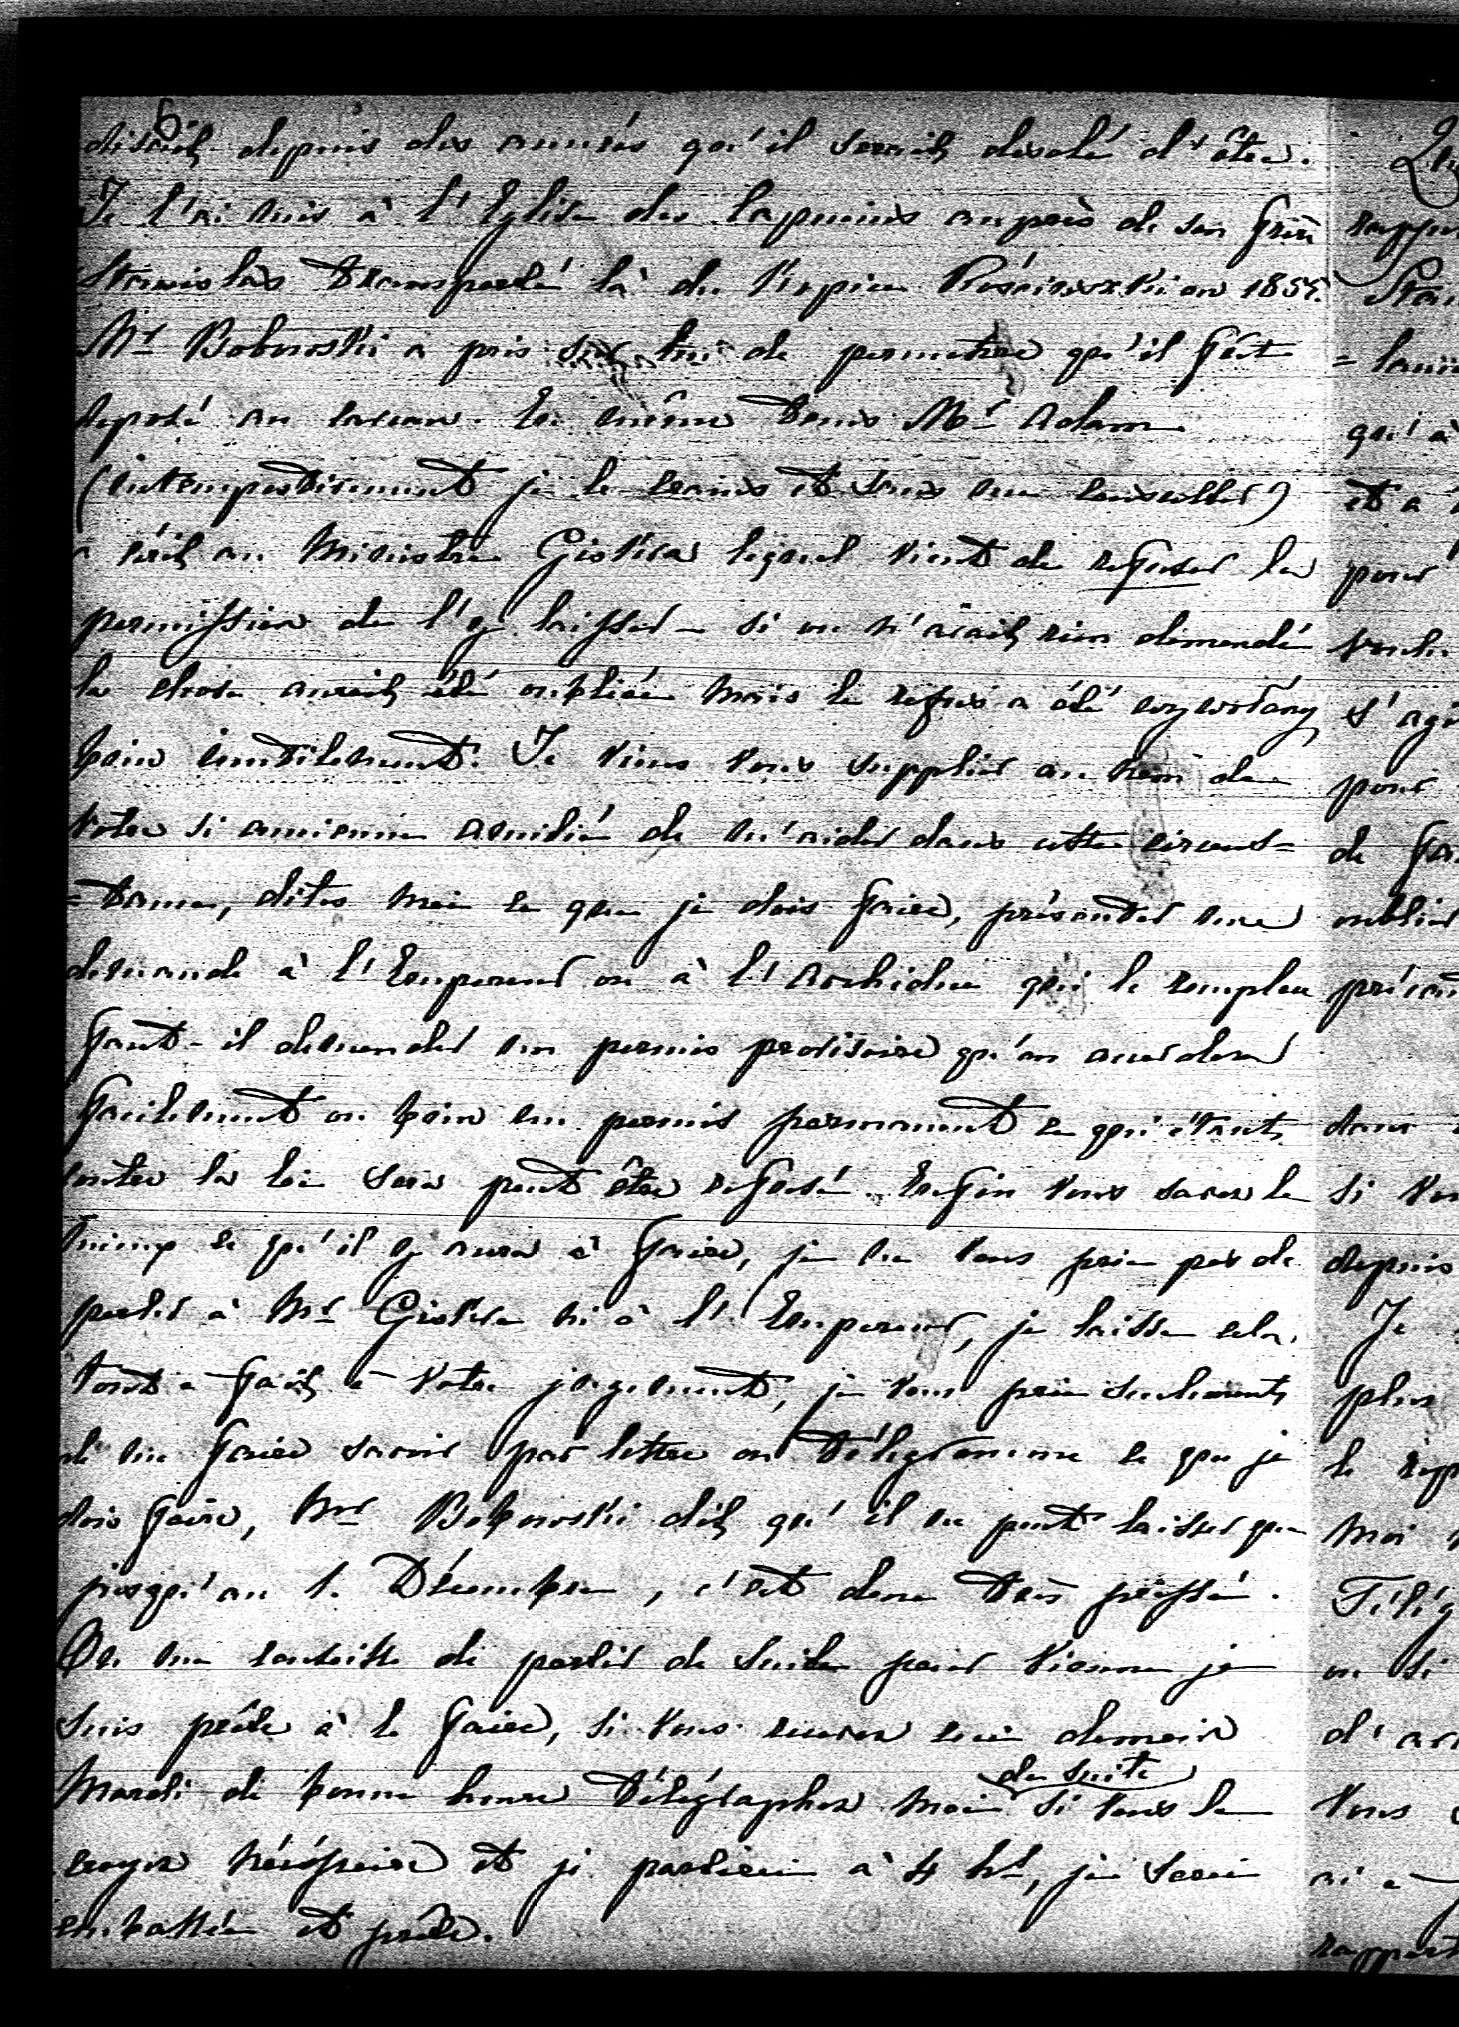 6
disait depuis des années qu'il serait désolé d'être.
Je l'ai mis à l'Eglise des Capucins auprès de son frère
Stanislas transporté là de
Mr Bobowski a pris sur lui de permettre qu'il fût
deposé au caveau. En même tems Mr Adam
(intempestivement je le crains et sans me consulter)
a écrit au Ministre Giskra lequel vient de refuser la
permission de l'y laisser – si on n'avait rien demandé
la chose aurait été oubliée mais le refus a été wywołany
bien inutilement. Je viens vous supplier au nom de
votre si ancienne amitié de m'aider dans cette circons=
=tance, dites moi ce que je dois faire, présenter une
demande à l'Empereur ou à l'Archiduc qui le remplace
faut-il demander un permis provisoire qu'on accordera
facilement ou bien un permis permanent ce qui étant
contre la loi sera peut être refusé. Enfin vous savez le
mieux ce qu'il y aura à faire, je ne vous prie pas de
parler à Mr Giskra ni à l'Empereur, je laisse cela
tout a fait à votre jugement, je vous prie seulement
de me faire savoir par lettre ou télégramme ce que je
dois faire, Mr Bobowski dit qu'il ne peut laisser que
jusqu'au 1. Décembre, c'est donc très pressé.
On me conseille de partir de suite pour Vienne je
suis prête à le faire, si vous recevez ceci demain
de suite
Mardi de bonne heure télégraphiez moi si vous le
croyez nécessaire et je partirai à 4 h., je serai
emballée et prête.
qu'à
et a
pour
s'agi
pour
de
oublier
dans
si
depuis
Je
plus
le
moi
ou si
vous